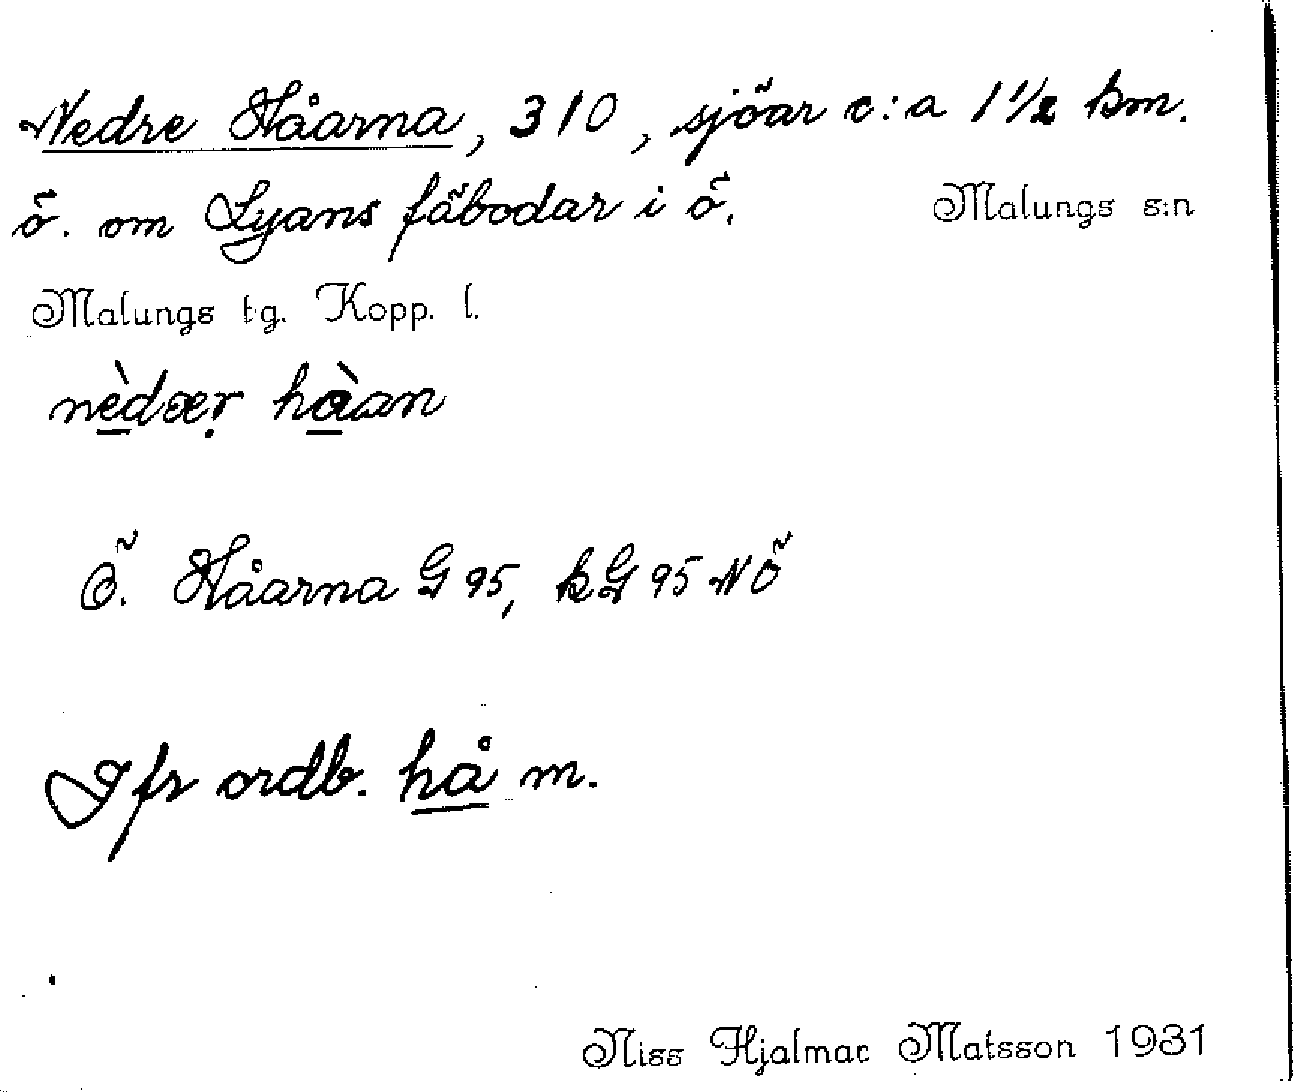 Nedre Håarna, 310, sjöar c:a 1 1/2 km.
ö. om Lyans fäbodar i ö. Malungs s:n
Malungs tg. Kopp. l.
nèdær̩ hàan
Ö. Håarna G 95, kG 95 NÖ
Jfr ordb. hå m.
Niss Hjalmar Matsson 1931